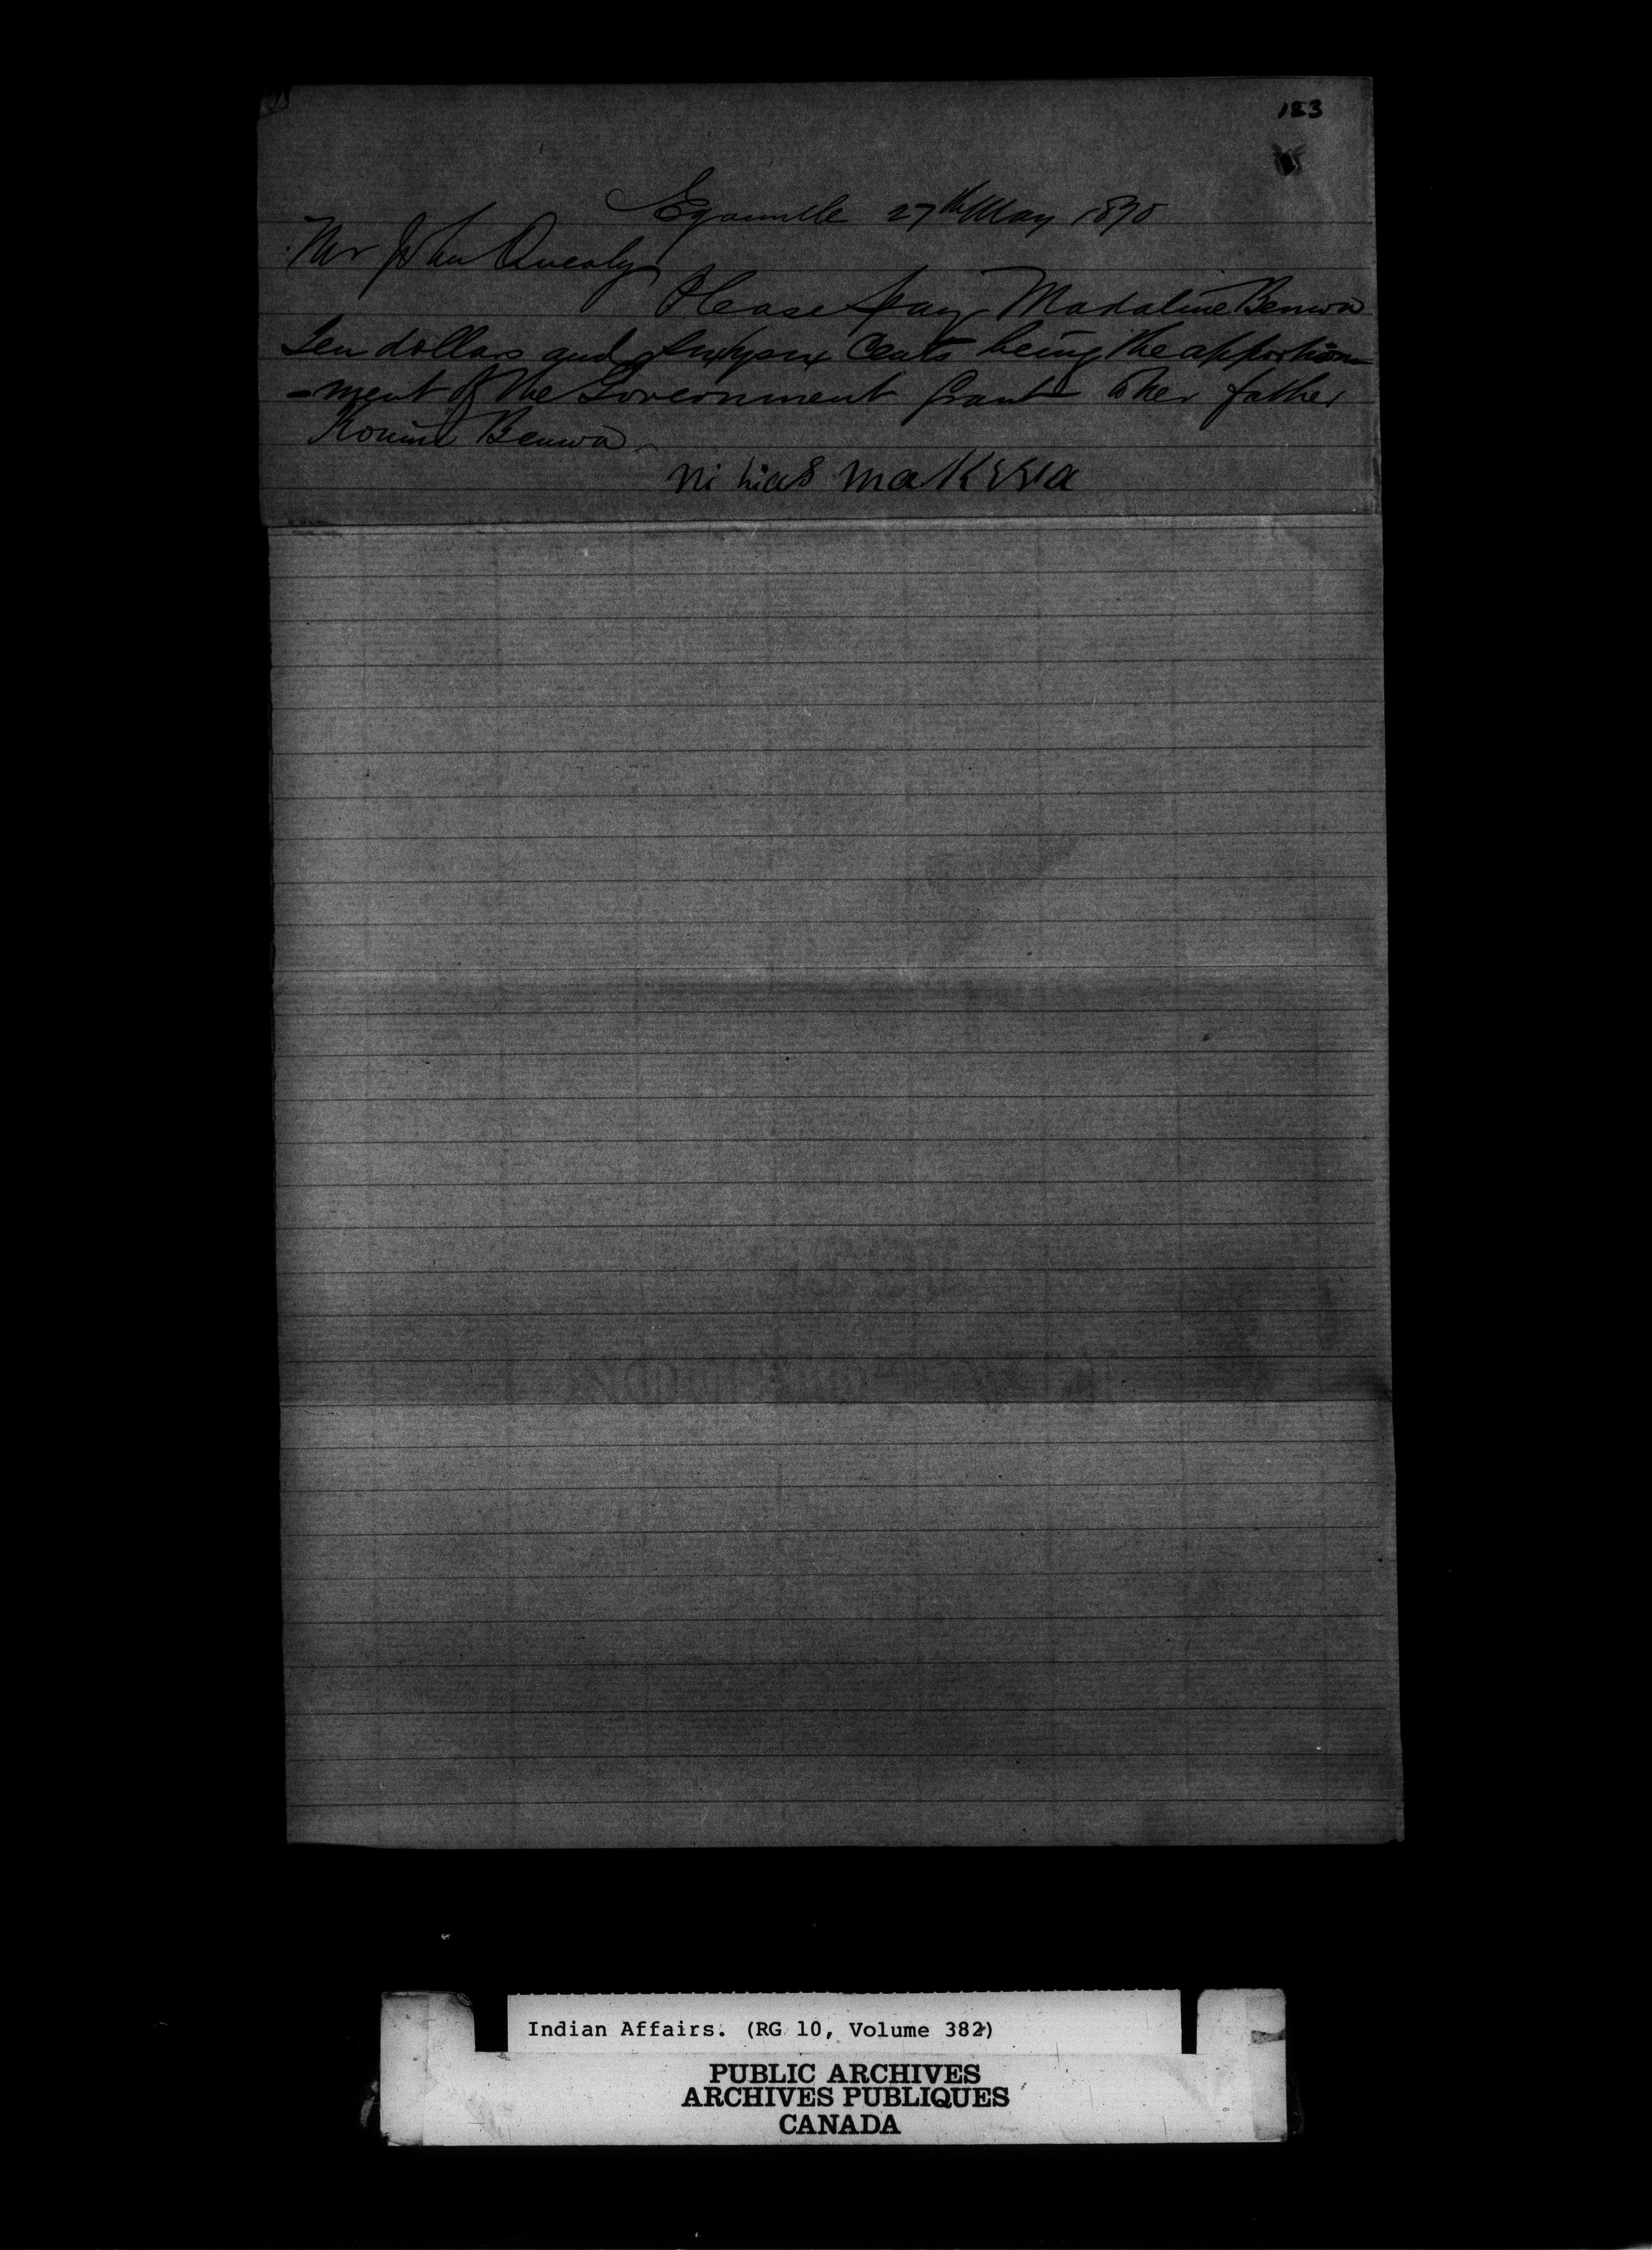 183
Eganville 27th May 1870
Mr John Quealy
Please pay Madaline Benwa
Ten dollars and Sixtysix Cents being the apportion-
-ment of the Government Grant to her father
Benwa
makwa
Indian Affairs. (RG 10, Volume 382)
PUBLIC ARCHIVES
ARCHIVES PUBLIQUES
CANADA